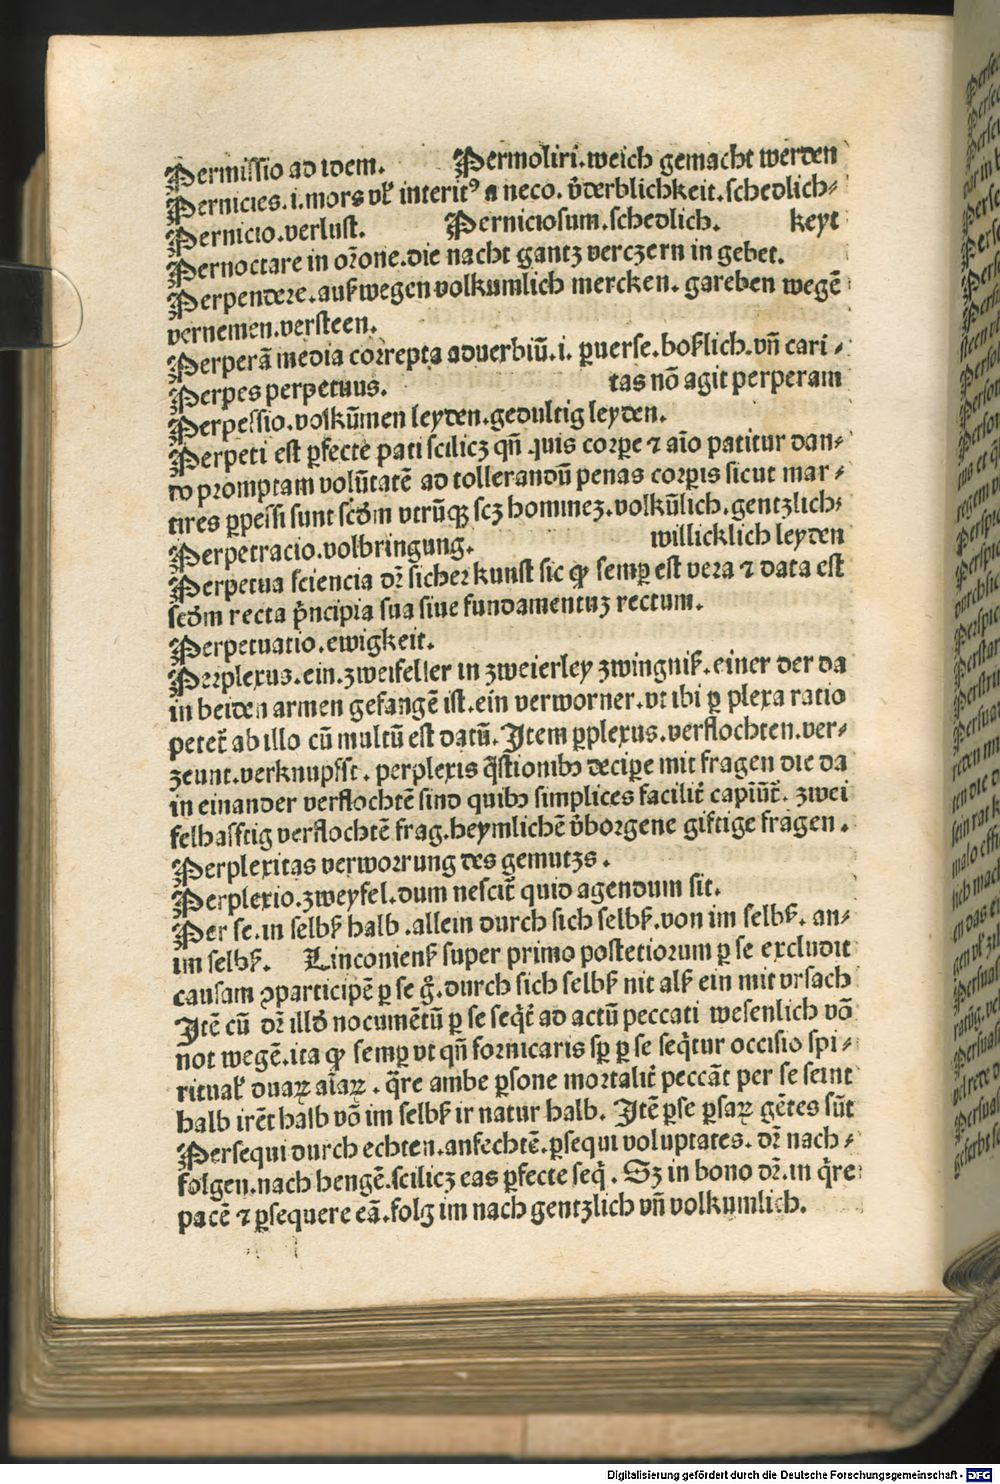 Permissio ad idem. Permoliri.weich gemacht werden
Pernicies.i.mors vł interitꝰ a neco. v̓derblichkeit.schedlich⸗
Pernicio.verlust. Perniciosum.schedlich. keyt
Pernoctare in or̄one.die nacht gantz verczern in gebet.
Perpendere.auß wegen volkumlich mercken. gareben wegē
vernemen.versteen.
Perperā media correpta aduerbiū.i. ꝑuerse.boßlich.vn̄ cari⸗
Perpes perpetuus. tas nō agit perperam
Perpessio.volkūmen leyden.gedultig leyden.
Perpeti est ꝑfecte pati scilicꝫ qn̄ quis corꝑe ⁊ aīo patitur dan⸗
do promptam volūtatē ad tollerandū penas corꝑis sicut mar⸗
tires ꝑpessi sunt scd̓m vtrūqꝫ scꝫ homineꝫ.volkūlich.gentzlich⸗
Perpetracio.volbringung. willicklich leyden
Perpetua sciencia dr̄ sicher kunst sic ꝙ semꝑ est vera ⁊ data est
scd̓m recta pͥncipia sua siue fundamentuꝫ rectum.
Perpetuatio.ewigkeit.
Perplexus.ein.zweifeller in zweierley zwingniß.einer der da
in beiden armen gefangē ist.ein verworner.vt ibi ꝑ plexa ratio
petet̄ ab illo cū multū est datū. Item ꝑplexus.verflochten.ver⸗
zeunt.verknupfft. perplexis q̄stionibꝫ deciꝑe mit fragen die da
in einander verflochtē sind quibꝫ simplices facilit̄ capiūt̄. zwei
felhafftig verflochtē frag.heymlichē v̓borgene giftige fragen.
Perplexitas verworrung des gemutzs.
Perplexio.zweyfel.dum nescit̄ quid agendum sit.
Per se.in selbß halb.allein durch sich selbß.von im selbß. an⸗
im selbß. Linconienß super primo posteriorum ꝑ se excludit
causam ꝯparticipē ꝑ se g̊.durch sich selbß nit alß ein mit vrsach
Itē cū dr̄ illd̓ nocumētū ꝑ se seqt̄ ad actū peccati wesenlich vō
not wegē.ita ꝙ semꝑ vt qn̄ fornicaris sꝑ ꝑ se seq̄tur occisio spi⸗
ritual duaꝝ aīaꝝ. q̄re ambe ꝑsone mortalit̄ peccāt per se seint
halb irēt halb vō im selbß ir natur halb. Itē ꝑse ꝑsaꝝ gētes sūt
Persequi durch echten.anfechtē.ꝑsequi voluptates. dr̄ nach⸗
folgen.nach hengē.scilicꝫ eas ꝑfecte seq̄. Sꝫ in bono dr̄.in q̄re
pacē ⁊ ꝑsequere eā.folg im nach gentzlich vn̄ volkumlich.
Digitalisierung gefördert durch die Deutsche Forschungsgemeinschaft - DFG